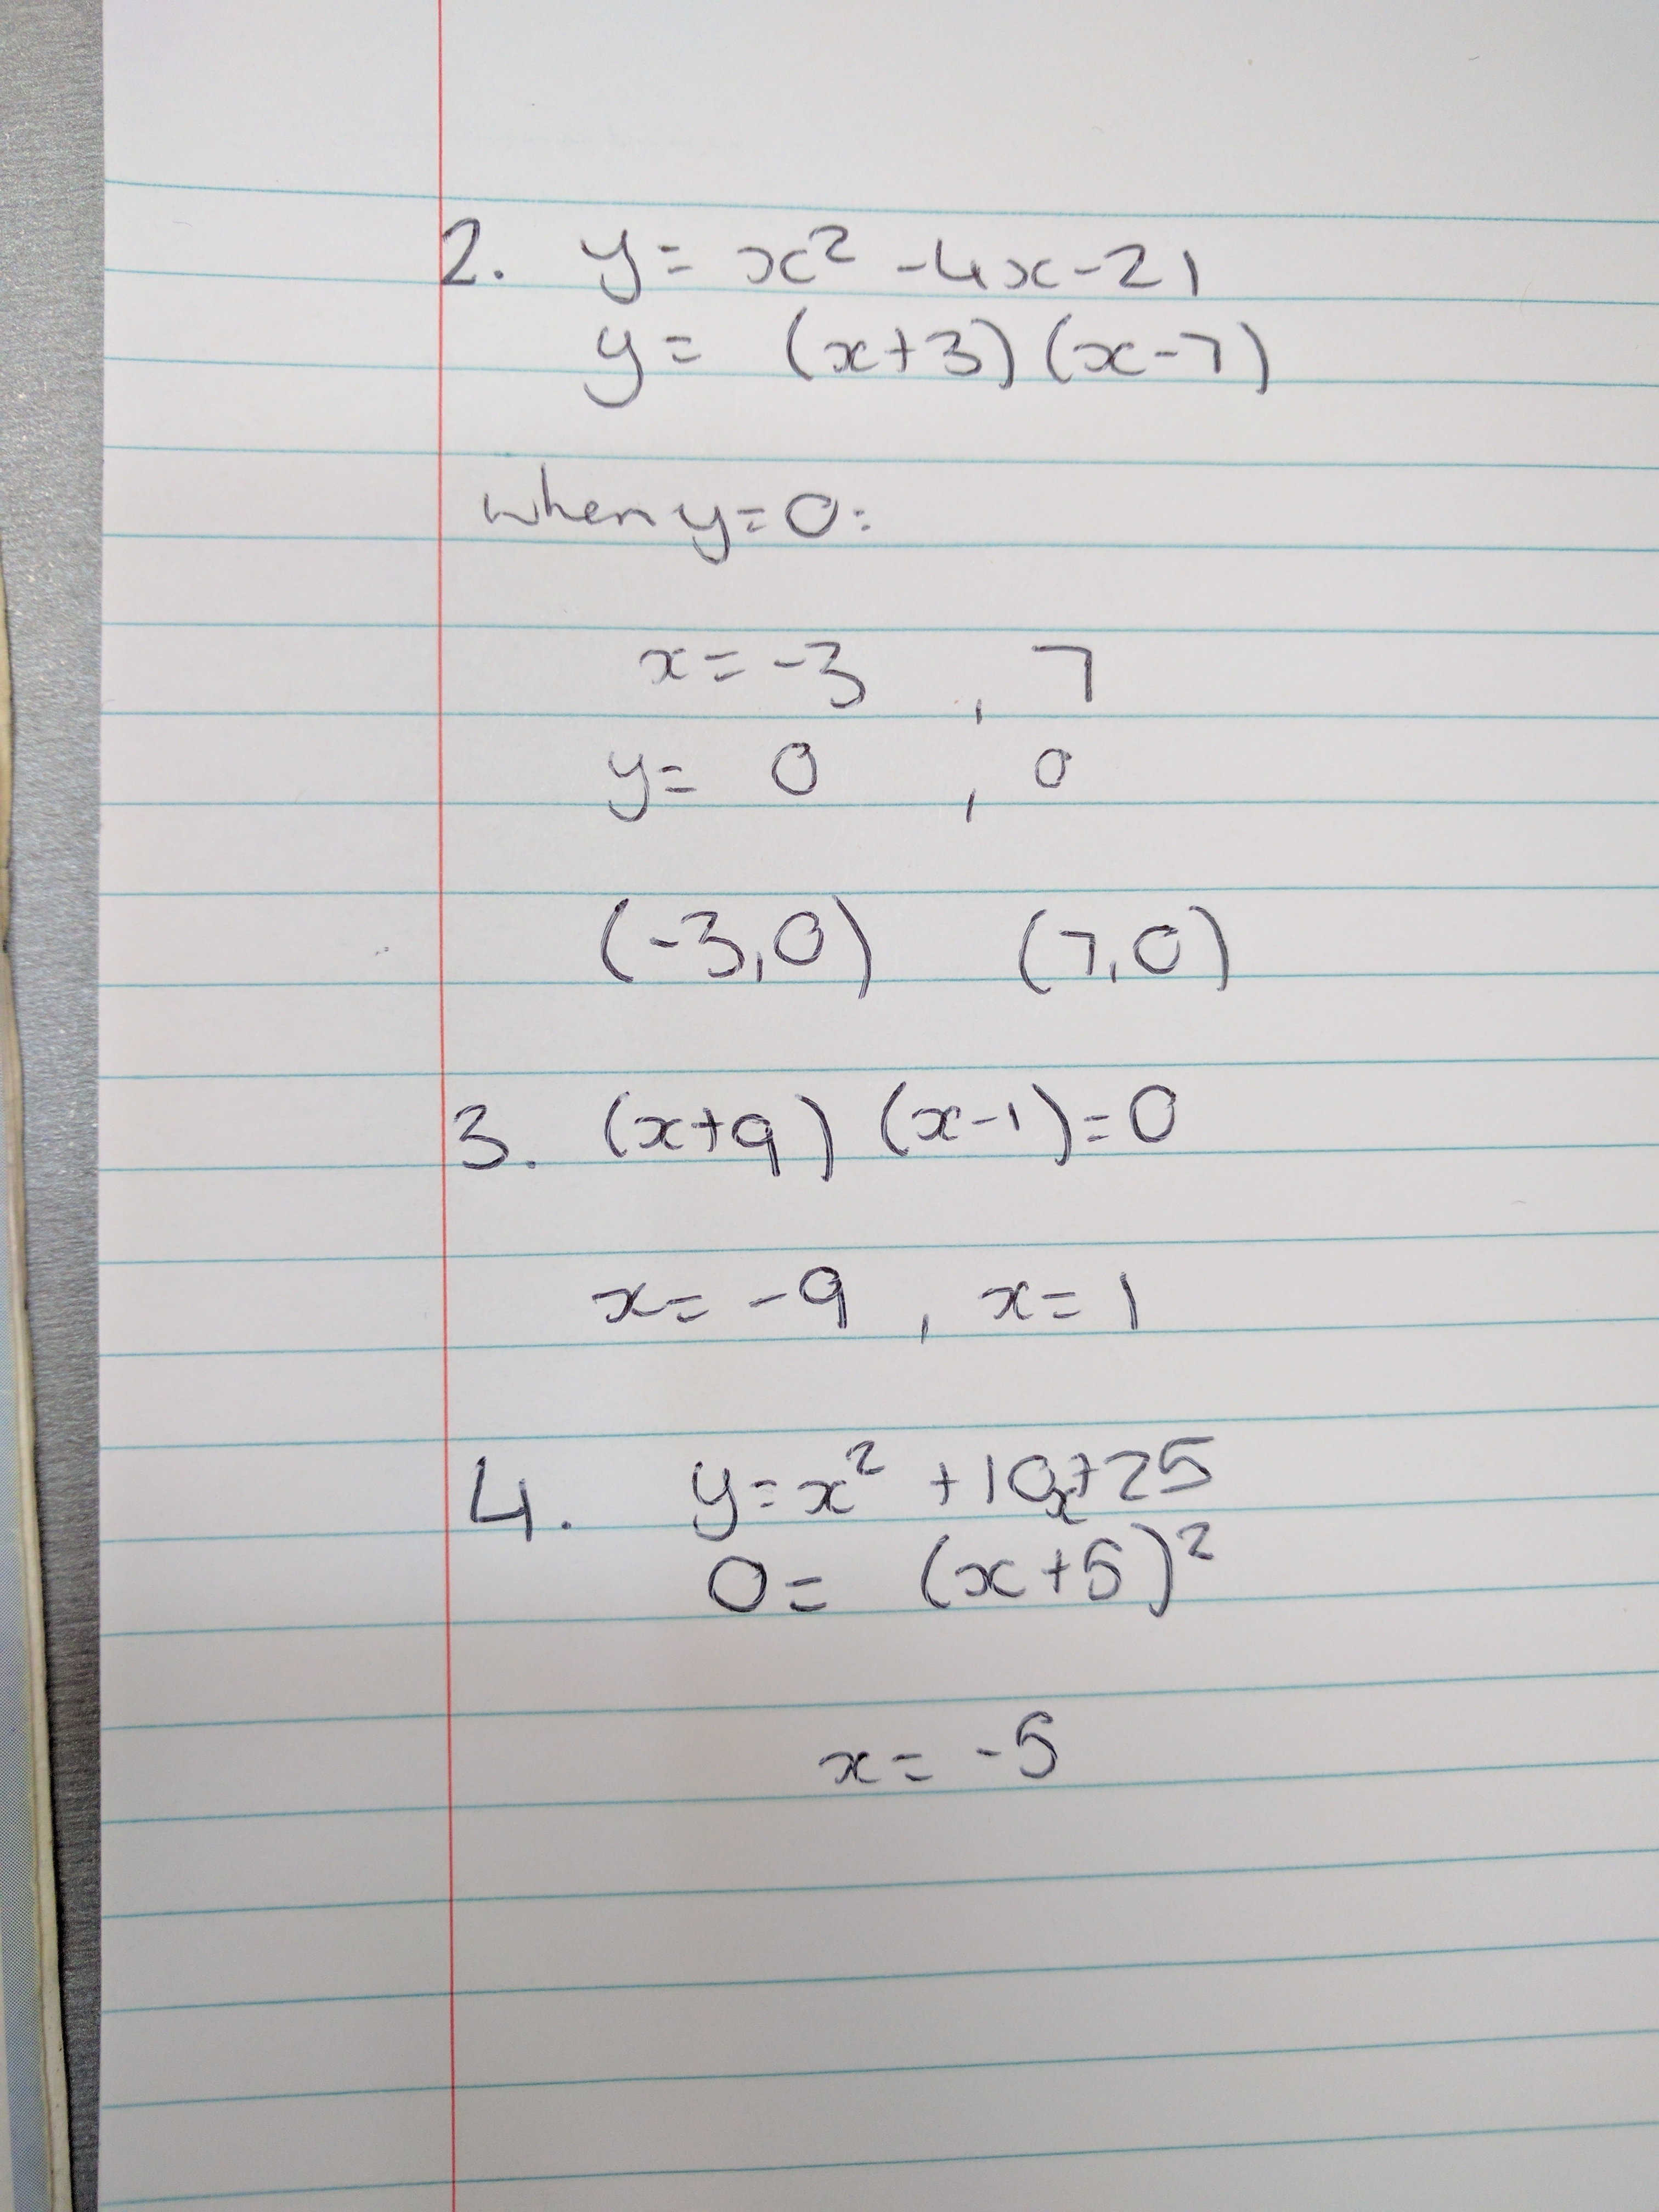 2. y = x² -4x-21
y = (x+3)(x-7)
when y=0:
x = -3 , 7
y = 0 , 0
(-3,0) (7,0)
3. (x+9) (x-1)=0
x = -9 , x = 1
4. y = x² +10x+25
0 = (x+5)²
x = -5